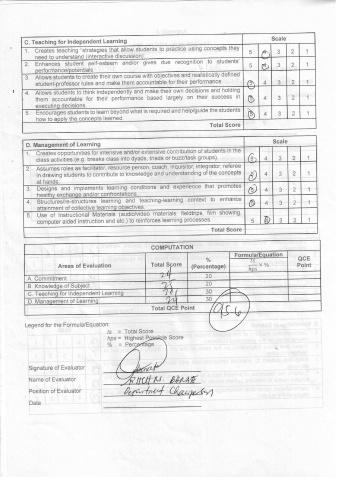 C. Teaching for Independent Learning Scale
1. Creates teaching strategies that allow students to practice using concepts they need to understand (interactive discussion) 5 4 3 2 1
2. Enhances student self-esteem and/or gives due recognition to students' performance/potentials 5 4 3 2 1
3. Allows students to create their own course with objectives and realistically defined student-professor rules and make them accountable for their performance 5 4 3 2 1
4. Allows students to think independently and make their own decisions and holding them accountable for their performance based largely on their success in executing decisions 5 4 3 2 1
5. Encourages students to learn beyond what is required and help/guide the students how to apply the concepts learned 5 4 3 2 1
Total Score
D. Management of Learning Scale
1. Creates opportunities for intensive and/or extensive contribution of students in the class activities (e.g. breaks class into dyads, triads or buzz/task groups). 5 4 3 2 1
2. Assumes roles as facilitator, resource person, coach, inquisitor, integrator, referee in drawing students to contribute to knowledge and understanding of the concepts at hands. 5 4 3 2 1
3. Designs and implements learning conditions and experience that promotes healthy exchange and/or confrontations. 5 4 3 2 1
4. Structures/re-structures learning and teaching-learning context to enhance attainment of collective learning objectives. 5 4 3 2 1
5. Use of Instructional Materials (audio/video materials, fieldtrips, film showing, computer aided instruction and etc.) to reinforces learning processes. 5 4 3 2 1
Total Score
COMPUTATION
Areas of Evaluation Total Score % (Percentage) Formula/Equation ts/hps × % QCE Point
A. Commitment 24 20
B. Knowledge of Subject 20
C. Teaching for Independent Learning 30
D. Management of Learning 24 30
Total QCE Point 95.6
Legend for the Formula/Equation:
ts = Total Score
hps = Highest Possible Score
% = Percentage
Signature of Evaluator :
Name of Evaluator :
Position of Evaluator : Department Chairperson
Date :